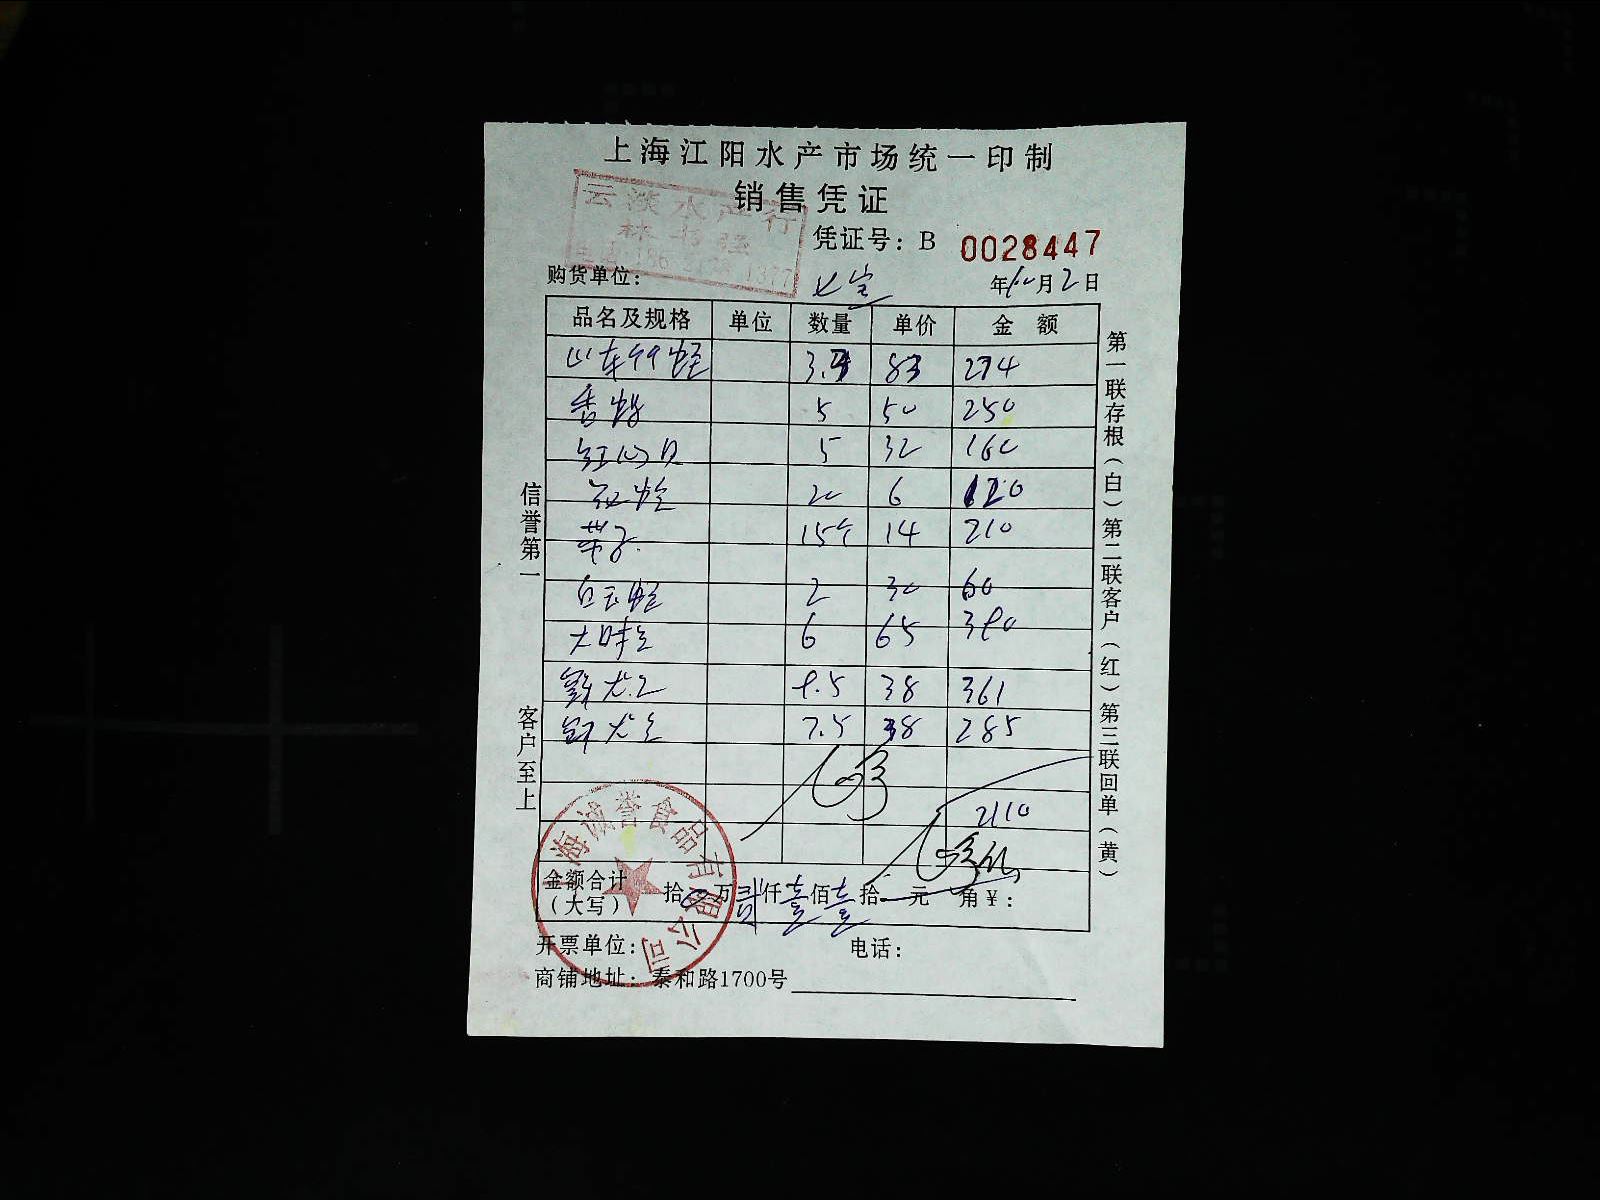 上海江阳水产市场统一印制
销售凭证
云淡水产行
凭证号：B 0028447
购货单位： 七宝 年 10月2日
品名及规格 单位 数量 单价 金额
山东 83 274
香螺 5 50 250
红心贝 5 32 160
20 6 120
带子 15个 14 210
白玉蛏 2 30 60
6 65 390
9.5 38 361
7.5 38 285
2110
金额合计（大写） 拾 万 贰仟壹佰壹拾 元 角￥：
开票单位： 电话：
商铺地址：泰和路1700号
信誉第一 客户至上
第一联存根（白）第二联客户（红）第三联回单（黄）
上海诚誉食品有限公司